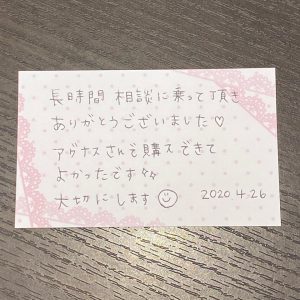 長時間 相談に乗って頂き
ありがとうございました♡
アグナスさんで購入できて
よかったです
大切にします☺
2020 4.26